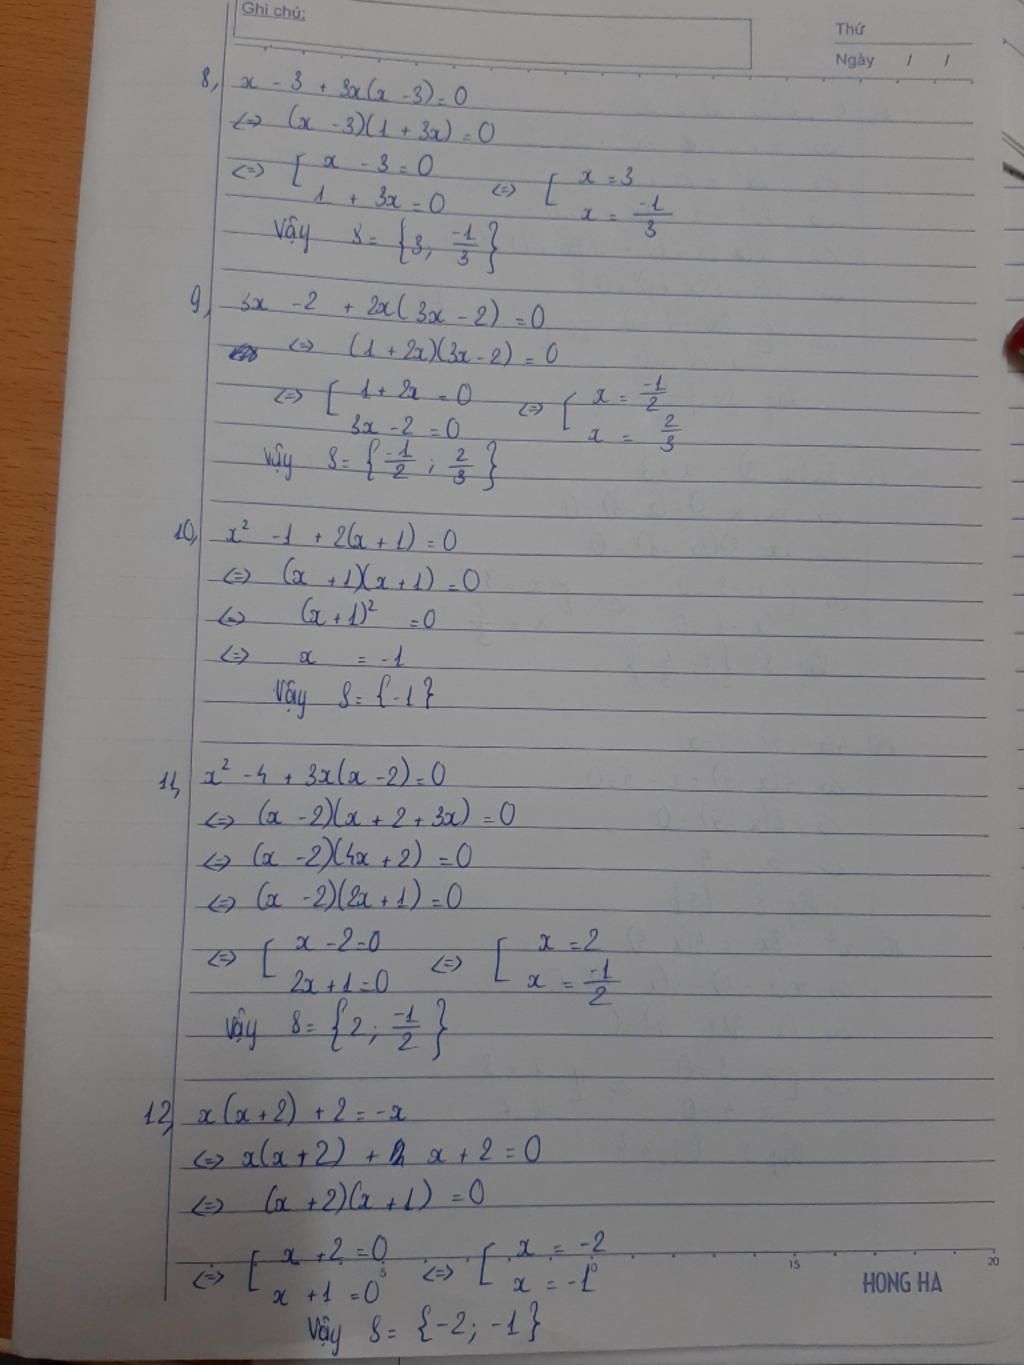 Ghi chú:
Thứ
Ngày / /
8, x - 3 + 3x(x - 3) = 0
<=> (x - 3)(1 + 3x) = 0
<=> [ x - 3 = 0 <=> [ x = 3
1 + 3x = 0 x = -1/3
Vậy S = {3; -1/3}
9, 3x - 2 + 2x(3x - 2) = 0
<=> (1 + 2x)(3x - 2) = 0
<=> [ 1 + 2x = 0 <=> [ x = -1/2
3x - 2 = 0 x = 2/3
Vậy S = {-1/2; 2/3}
10, x² - 1 + 2(x + 1) = 0
<=> (x + 1)(x + 1) = 0
<=> (x + 1)² = 0
<=> x = -1
Vậy S = {-1}
11, x² - 4 + 3x(x - 2) = 0
<=> (x - 2)(x + 2 + 3x) = 0
<=> (x - 2)(4x + 2) = 0
<=> (x - 2)(2x + 1) = 0
<=> [ x - 2 = 0 <=> [ x = 2
2x + 1 = 0 x = -1/2
Vậy S = {2; -1/2}
12, x(x + 2) + 2 = -x
<=> x(x + 2) + x + 2 = 0
<=> (x + 2)(x + 1) = 0
<=> [ x + 2 = 0 <=> [ x = -2
x + 1 = 0 x = -1
5 10 15 20
HONG HA
Vậy S = {-2; -1}